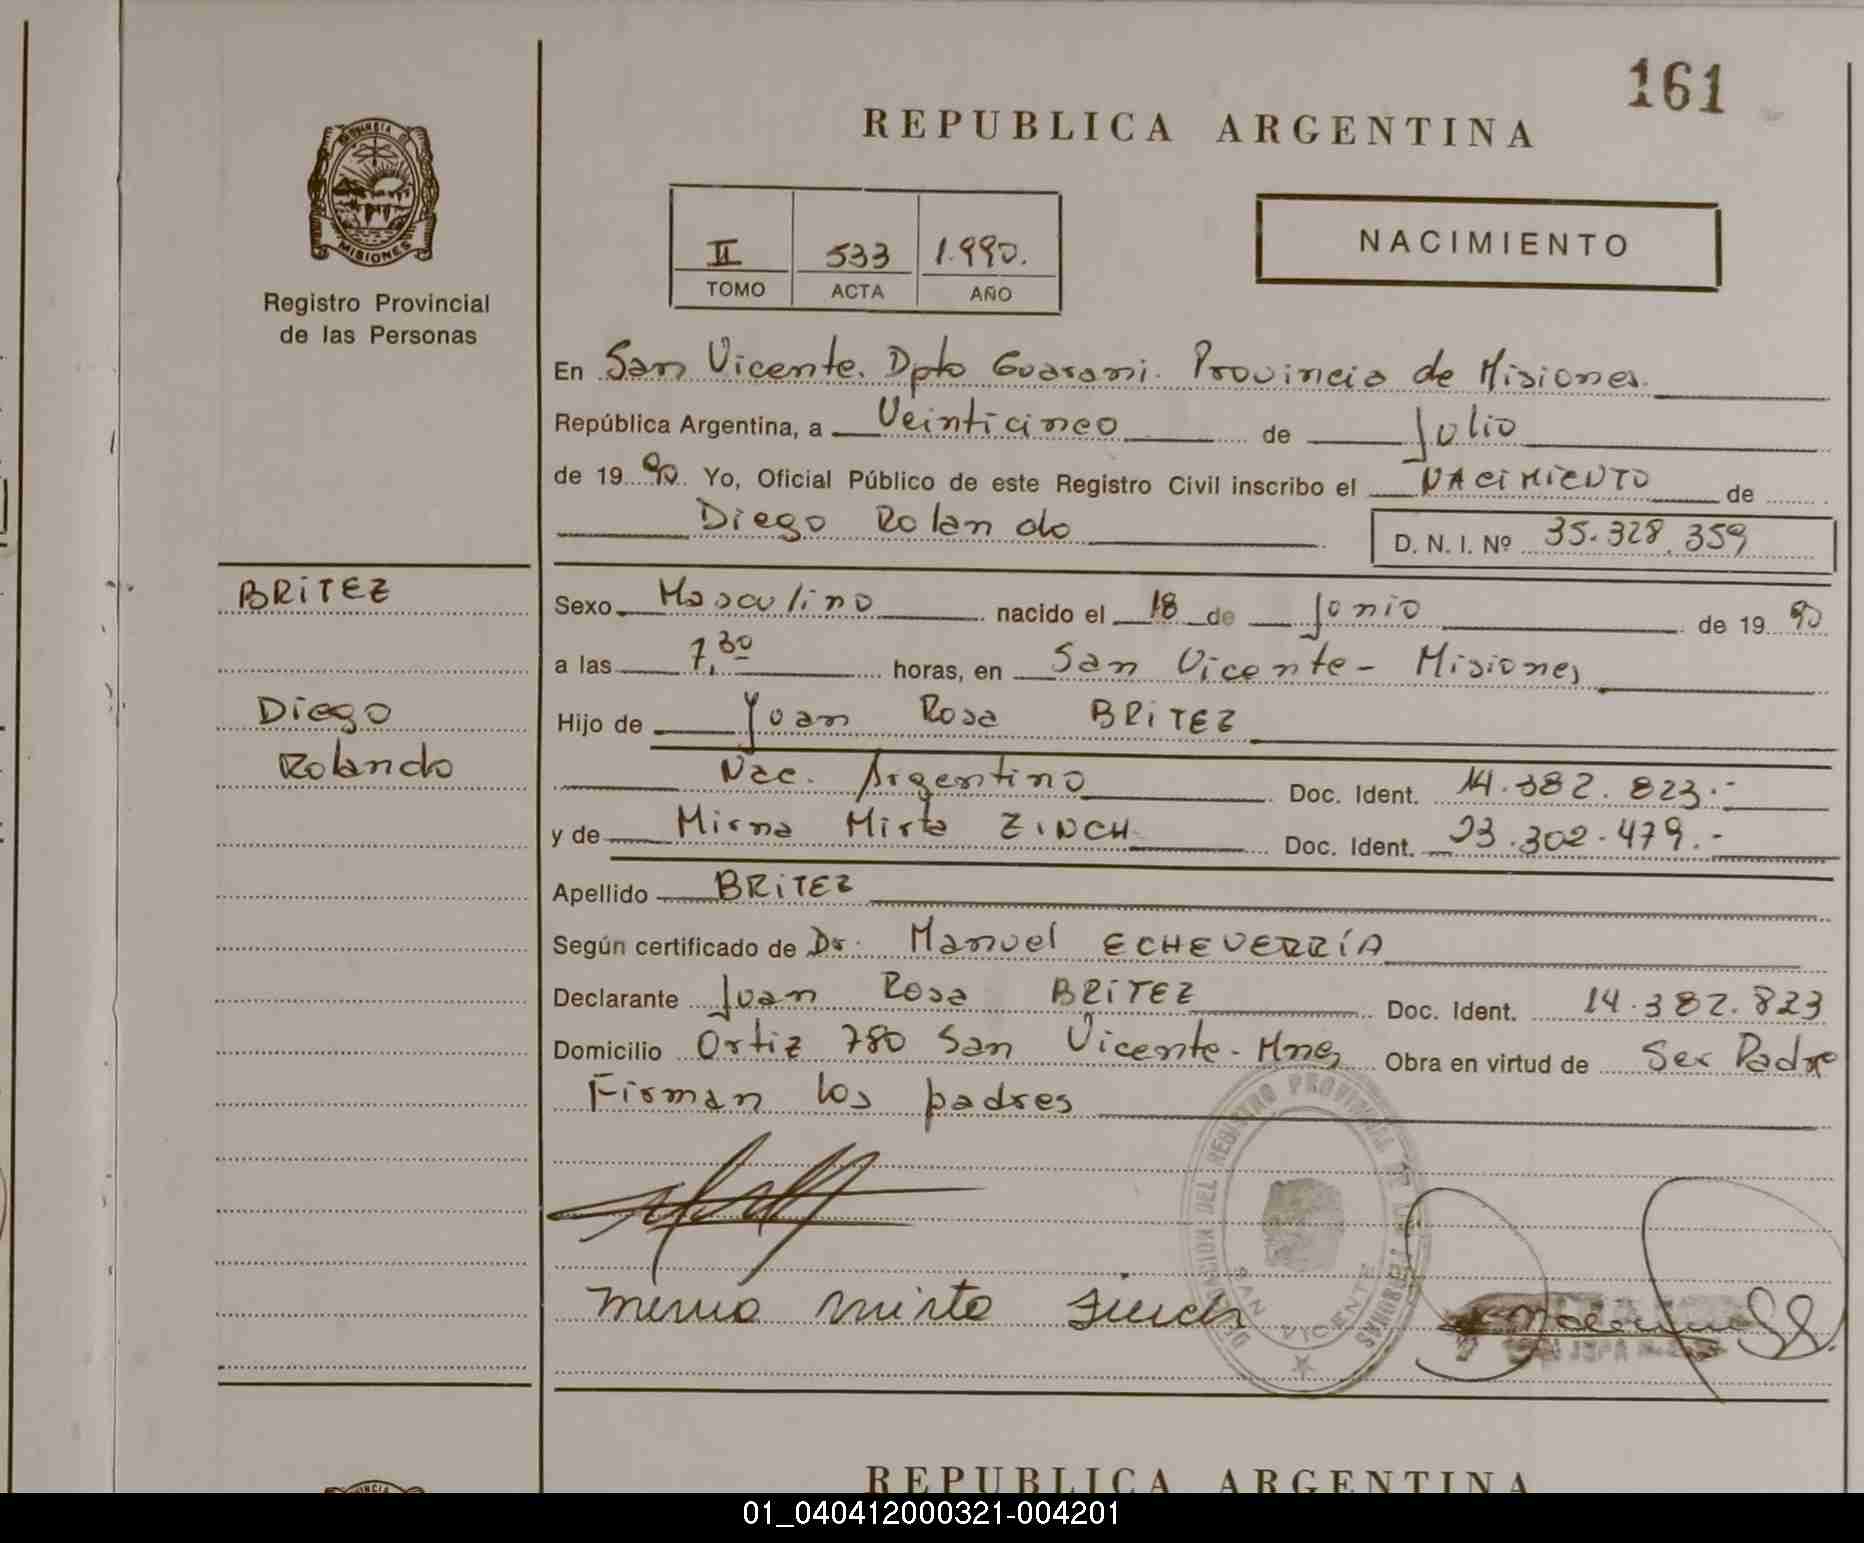 161
REPUBLICA ARGENTINA
PROVINCIA D
MISIONES
Registro Provincial
de las Personas
II 533 1.990.
TOMO ACTA AÑO
NACIMIENTO
En San Vicente. Dpto Guarani. Provincia de Misiones.
República Argentina, a Veinticinco de Julio
de 1990. Yo, Oficial Público de este Registro Civil inscribo el NACIMIENTO de
Diego Rolando D. N. I. Nº 35.328.359
BRITEZ
Diego
Rolando
Sexo Masculino nacido el 18 de Junio de 1990
a las 7,30 horas, en San Vicente - Misiones
Hijo de Juan Rosa BRITEZ
Nac. Argentino Doc. Ident. 14.382.823.-
y de Mirna Mirta ZINCH Doc. Ident. 23.302.479.-
Apellido BRITEZ
Según certificado de Dr. Manuel ECHEVERRÍA
Declarante Juan Rosa BRITEZ Doc. Ident. 14.382.823
Domicilio Ortiz 780 San Vicente - Mnes Obra en virtud de Ser Padre
Firman los padres
DELEGACION DEL REGISTRO PROVINCIAL DE LAS PERSONAS
SAN VICENTE
Mirna Mirta Zinch
REPUBLICA ARGENTINA
01_040412000321-004201